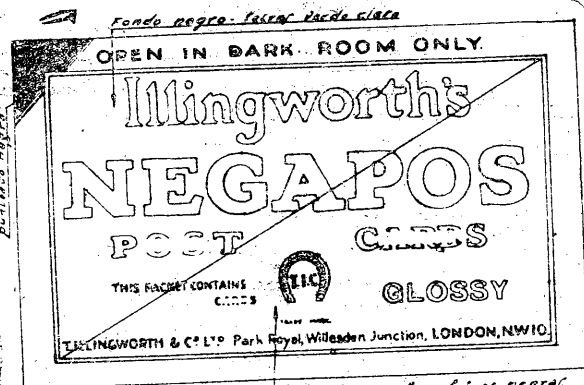 Fondo negro - letras verde claro
OPEN IN DARK ROOM ONLY.
Illingworth's
NEGAPOS
POST CARDS
THIS PACKET CONTAINS
CARDS
T.I.C.
GLOSSY
TRADE MARK
ILLINGWORTH & Cº LTD Park Royal, Willesden Junction, LONDON, NW10.